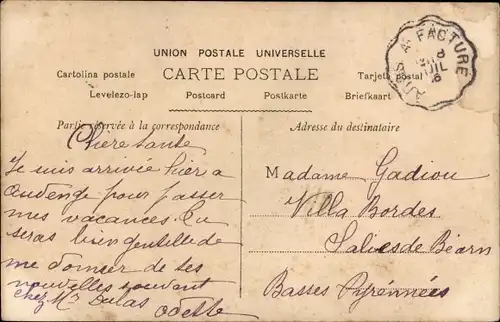 UNION POSTALE UNIVERSELLE
Cartolina postale CARTE POSTALE Tarjeta postal
Levelezo-lap Postcard Postkarte Briefkaart
Partie réservée à la correspondance
Adresse du destinataire
FACTURE
JUIL
Chère tante
Je suis arrivée hier a
Audenge pour passer
mes vacances. Tu
seras bien gentille de
me donner de tes
nouvelles souvent
chez Mr Dulas
Odette
Madame Gadiou
Villa Bordes
Salies de Béarn
Basses Pyrénnées